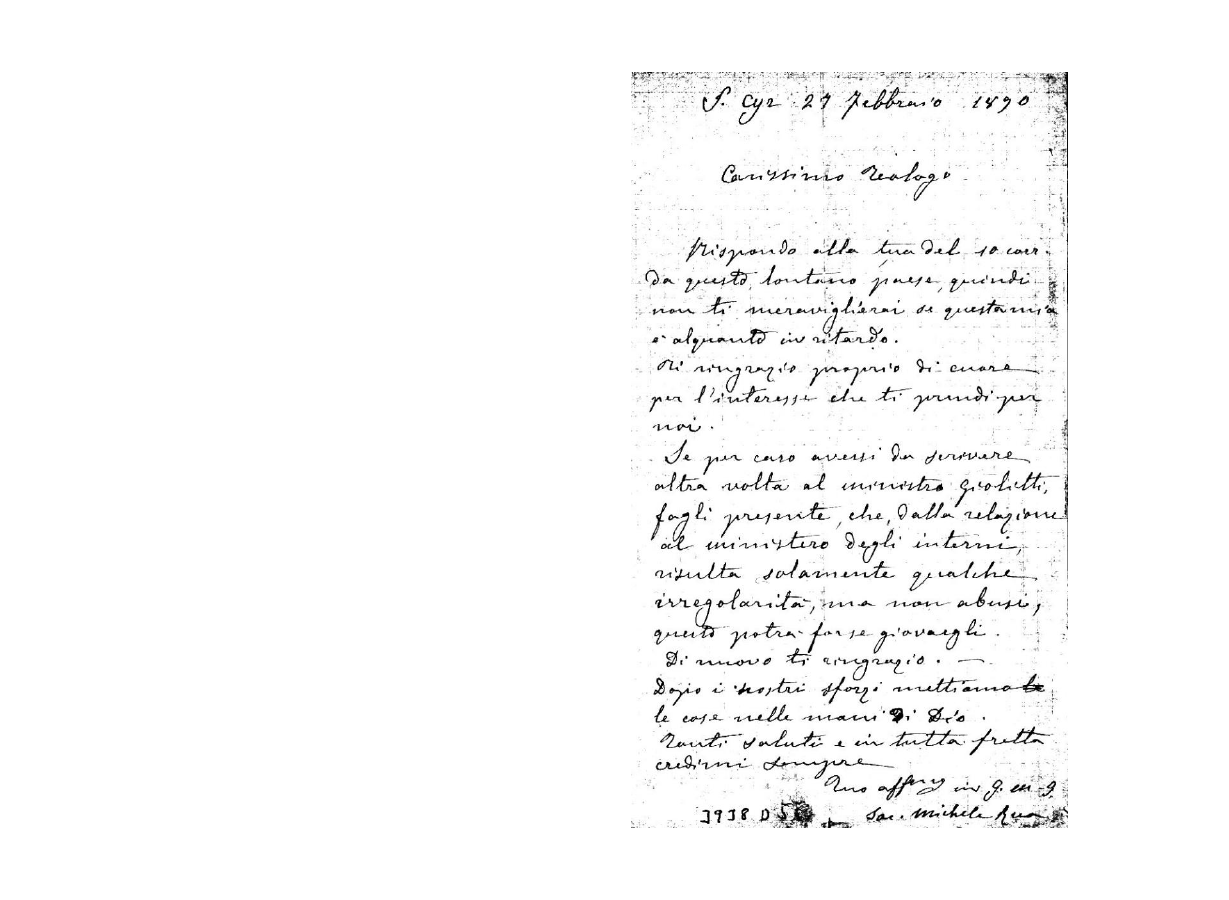 S. Cyr 27 Febbraio 1890
Carissimo Teologo
Rispondo alla tua del 10 corr.
da questo lontano paese, quindi
non ti meraviglierai se questa mia
è alquanto in ritardo.
Ti ringrazio proprio di cuore
per l'interesse che ti prendi per
noi.
Se per caso avessi da scrivere
altra volta al ministro Giolitti,
fagli presente, che, dalla relazione
al ministero degli interni,
risulta solamente qualche
irregolarità, ma non abusi,
questo potrà forse giovargli.
Di nuovo ti ringrazio. —
Dopo i nostri sforzi mettiamo le
le cose nelle mani di Dio.
Tanti saluti e in tutta fretta
credimi sempre
Tuo aff.mo in G. M. G.
Sac. Michele Rua